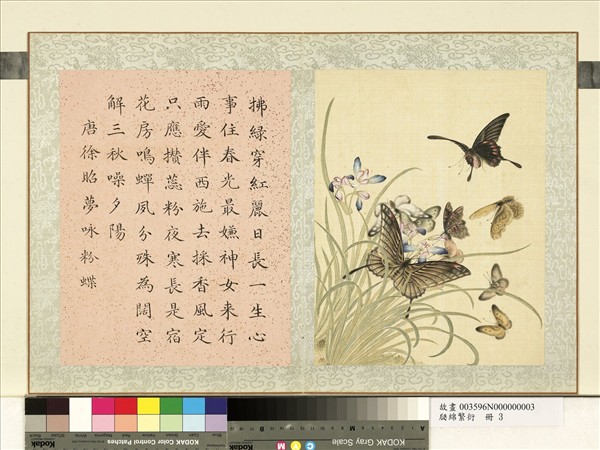 拂綠穿紅麗日長一生心
事住春光最嫌神女來行
雨愛伴西施去採香風定
只應攢蕊粉夜寒長是宿
花房鳴蟬夙分殊為闊空
解三秋噪夕陽
唐徐昭夢咏粉蝶
故畫 003596N000000003
瓞綿繁衍 冊 3
KODAK Color Control Patches
KODAK Gray Scale
Kodak
C Y M